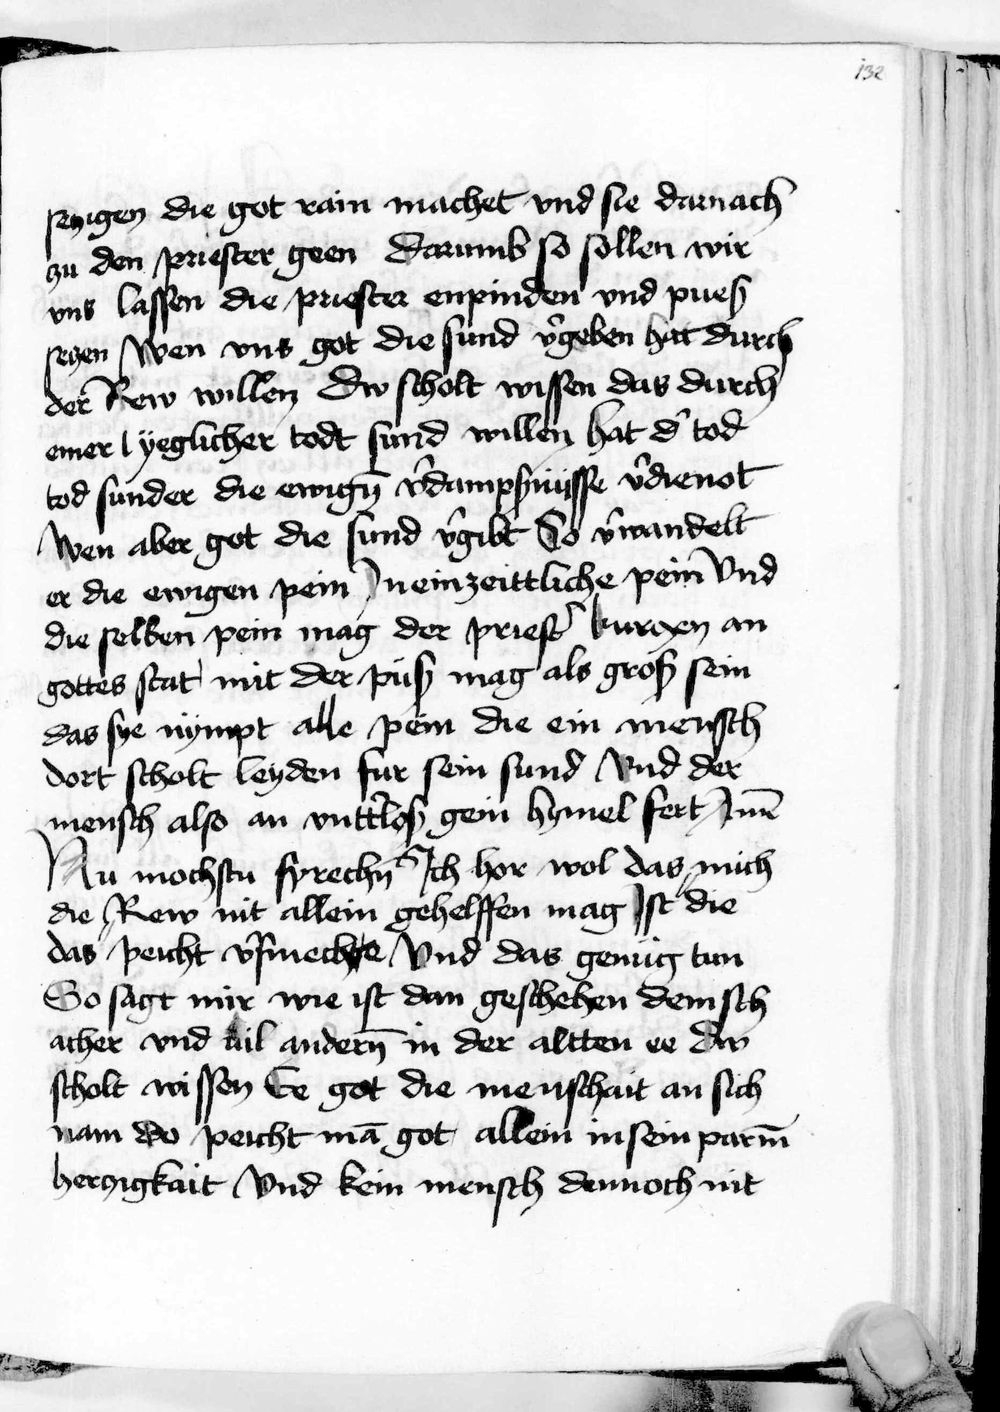 132
senigen die got rain machet vnd sie darnach
zu den priester geen Darumb so sollen wir
vns lassen die priester enpinden vnd pueß
seczen Wen vns got die sund v̾geben hat durch
der Rew willen Dw scholt wissen das durch
einer yeglicher todt sund willen hat d̾ tod
tod sunder die ewign̄ v̾dampßnüsse v̾dienot
Wen aber got die sund v̾gibt So v̾wandelt
er die ewigen pein In ein zeittliche pein Vnd
die selben pein mag der priest̾ kurczen an
gottes stat mit der püß mag als groß sein
das sye nÿmpt alle pein die ein mensch
dort scholt leyden fur sein sund Vnd der
mensch also an vntt̾loß gein hymel fert
Nu mochstu sprechn̄ Ich hor wol das mich
die Rew nit allein gehelffen mag Ist die
das peicht v̾smechte Vnd das genüg tun
So sagt mir wie ist dan geschehen dem sch
acher vnd uil andern̄ in der altten ee Dw
scholt wissen Ee got die menschait an sich
nam do peicht mā got allein in sein parm̄
herczigkait Vnd kein mensch dennoch nit